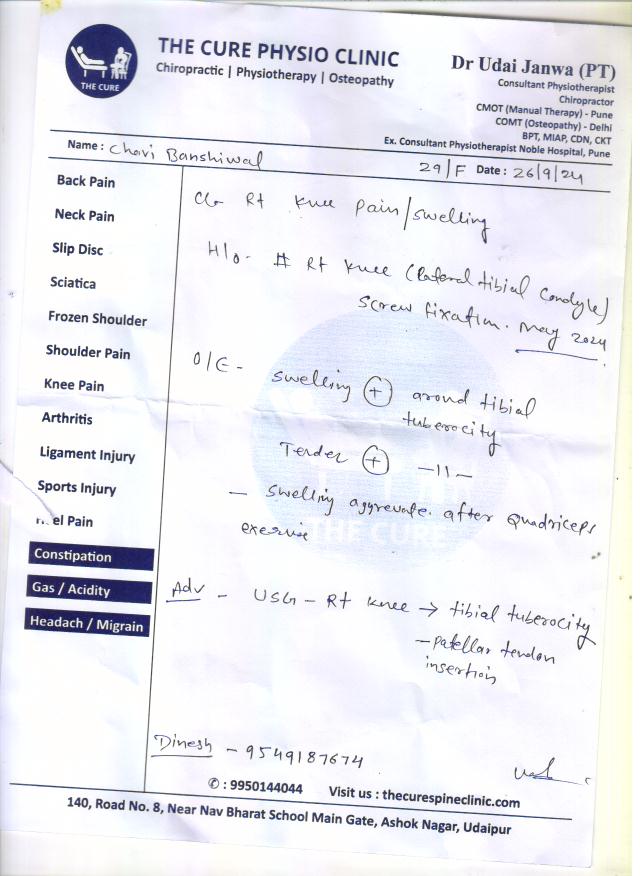 THE CURE
THE CURE PHYSIO CLINIC
Chiropractic | Physiotherapy | Osteopathy
Dr Udai Janwa (PT)
Consultant Physiotherapist
Chiropractor
CMOT (Manual Therapy) - Pune
COMT (Osteopathy) - Delhi
BPT, MIAP, CDN, CKT
Ex. Consultant Physiotherapist Noble Hospital, Pune
Name : Chavi Banshiwal 29/F Date : 26/9/24
Back Pain
Neck Pain
Slip Disc
Sciatica
Frozen Shoulder
Shoulder Pain
Knee Pain
Arthritis
Ligament Injury
Sports Injury
el Pain
Constipation
Gas / Acidity
Headach / Migrain
C/o Rt Knee Pain/swelling
H/o - # Rt Knee (Lateral tibial Condyle)
Screw fixation. May 2024
O/E - swelling (+) arond tibial
tuberocity
Tender (+) -11-
- swelling aggrevate. after Quadriceps
exercise
THE CURE
Adv - USG - Rt Knee → tibial tuberocity
- Patellar tendon
insertion
Dinesh - 9549187674
✆ : 9950144044 Visit us : thecurespineclinic.com
140, Road No. 8, Near Nav Bharat School Main Gate, Ashok Nagar, Udaipur